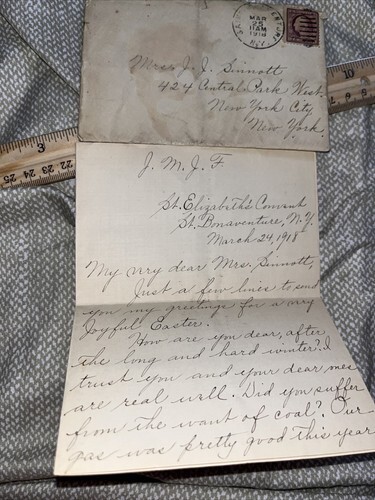 SAINT BONAVENTURE
MAR
25
11AM
1918
N.Y.
Mrs. J. J. Sinnott
424 Central Park West
New York City
New York.
3
10
25 24 23 22
7 8 9
J. M. J. F.
St. Elizabeth's Convent
St. Bonaventure, N.Y.
March 24, 1918
My very dear Mrs. Sinnott,
Just a few lines to send
you my greetings for a very
Joyful Easter.
How are you dear, after
the long and hard winter? I
trust you and your dear ones
are real well. Did you suffer
from the want of coal? Our
gas was pretty good this year